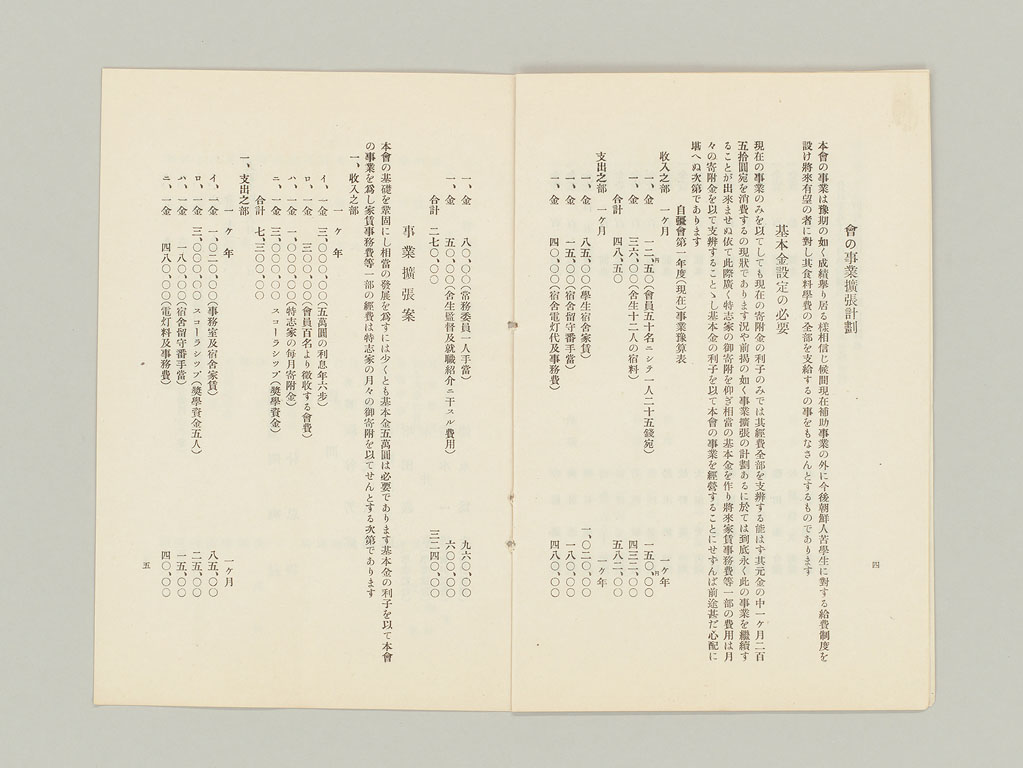 會の事業擴張計劃
本會の事業は豫期の如く成績擧り居る樣相信じ候間現在補助事業の外に今後朝鮮人苦學生に對する給費制度を
設け將來有望の者に對し其食料學費の全部を支給するの事をもなさんとするものであります
基本金設定の必要
現在の事業のみを以てしても現在の寄附金の利子のみでは其經費全部を支辨する能はす其元金の中一ヶ月二百
五拾圓宛を消費するの現狀であります況や前揭の如く事業擴張の計劃あるに於ては到底永く此の事業を繼續す
ることが出來ませぬ依て此際廣く特志家の御寄附を仰ぎ相當の基本金を作り將來家賃事務費等一部の費用は月
々の寄附金を以て支辨することゝし基本金の利子を以て本會の事業を經營することにせずんば前途甚だ心配に
堪へぬ次第であります
自彊會第一年度(現在)事業豫算表
收入之部 一ヶ月 一ヶ年
一、金 一二、五〇(會員五十名ニシテ一人二十五錢宛) 一五〇、〇〇
一、金 三六、〇〇(舍生十二人の宿料) 四三二、〇〇
合計 四八、五〇 五八二、〇〇
支出之部 一ヶ月 一ヶ年
一、金 八五、〇〇(學生宿舍家賃) 一、〇二〇、〇〇
一、金 一五、〇〇(宿舍留守番手當) 一八〇、〇〇
一、金 四〇、〇〇(宿舍電灯代及事務費) 四八〇、〇〇
四
一、金 八〇、〇〇(常務委員一人手當) 九六〇、〇〇
一、金 五〇、〇〇(舍生監督及就職紹介ニ干スル費用) 六〇〇、〇〇
合計 二七〇、〇〇 三二四〇、〇〇
事業擴張案
本會の基礎を鞏固にし相當の發展を爲すには少くとも基本金五萬圓は必要であります基本金の利子を以て本會
の事業を爲し家賃事務費等一部の經費は特志家の月々の御寄附を以てせんとする次第であります
一、收入之部 一ヶ年
イ、一金 三、〇〇〇、〇〇(五萬圓の利息年六步)
ロ、一金 三〇〇、〇〇(會員百名より徵收する會費)
ハ、一金 一、〇〇〇、〇〇(特志家の每月寄附金)
ニ、一金 三、〇〇〇、〇〇 スコーラシツプ(奬學資金)
合計 七、三〇〇、〇〇
一、支出之部 一ヶ年 一ヶ月
イ、一金 一、〇二〇、〇〇(事務室及宿舍家賃) 八五、〇〇
ロ、一金 三、〇〇〇、〇〇 スコーラシツプ(奬學資金五人) 二五〇、〇〇
ハ、一金 一八〇、〇〇(宿舍留守番手當) 一五、〇〇
ニ、一金 四八〇、〇〇(電灯料及事務費) 四〇、〇〇
五